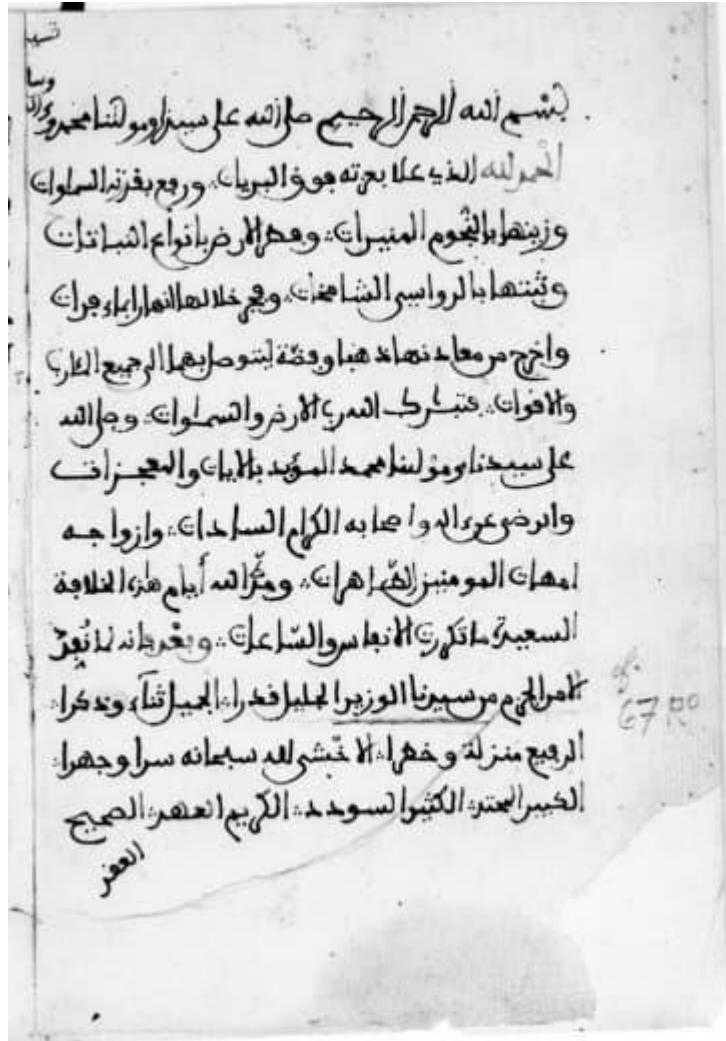 بسم الله الرحمن الرحيم صلى الله على سيدنا ومولانا محمد
الحمد لله الذي علا بعزته فوق البريات ورفع بقدرته السماوات
وزينها بالنجوم المنيرات وعمر الارض بانواع النباتات
وثبتها بالرواسي الشامخات وفجر خلالها انهارا بماء فرات
واخرج من معادنها ذهبا وفضة ليتوصل بهما الى جميع
والاقوات فتبارك الله رب الارض والسماوات وصلى الله
على سيدنا ومولانا محمد المؤيد بالايات والمعجزات
والرضى عن اله واصحابه الكرام السادات وازواجه
امهات المومنين الطاهرات ومكن الله أيام هذه الخلافة
السعيدة ما تكررت الانفاس والساعات وبعد فانه لما نفذ
الامر الكريم من سيدنا الوزير الجليل قدرا الجميل ثناء وذكرا
الرفيع منزلة وخطرا الاخشى لله سبحانه سرا وجهرا
الكبير المحتد الكثير السودد الكريم العهد الصحيح
العقد
f.
67 Rº